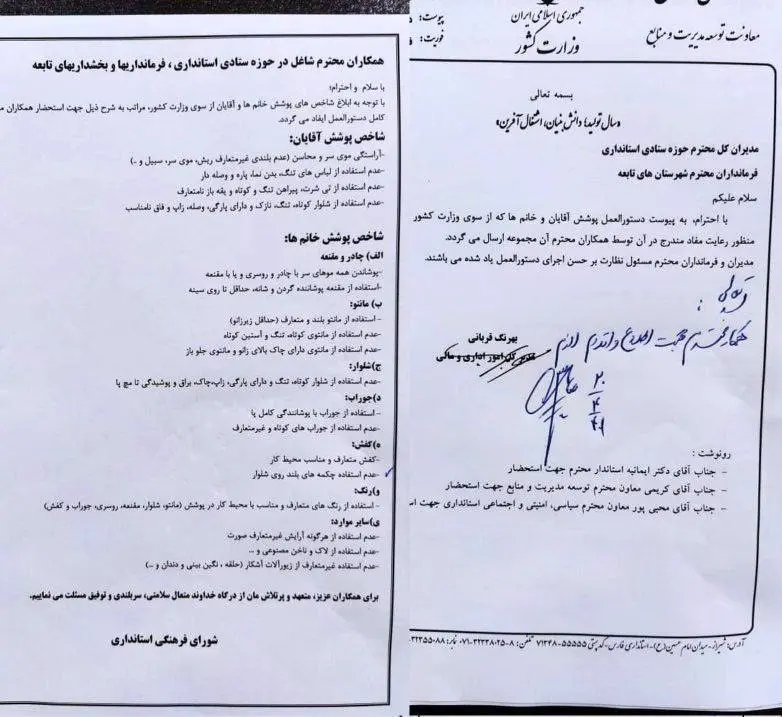 همکاران محترم شاغل در حوزه ستادی استانداری ، فرمانداریها و بخشداریهای تابعه
با سلام و احترام؛
با توجه به ابلاغ شاخص های پوشش خانم ها و آقایان از سوی وزارت کشور، مراتب به شرح ذیل جهت استحضار همکاران
کامل دستورالعمل ایفاد می گردد.
شاخص پوشش آقایان:
-آراستگی موی سر و محاسن (عدم بلندی غیرمتعارف ریش، موی سر، سبیل و ..)
-عدم استفاده از لباس های تنگ، بدن نما، پاره و وصله دار
-عدم استفاده از تی شرت، پیراهن تنگ و کوتاه و یقه باز نامتعارف
-عدم استفاده از شلوار کوتاه، تنگ، نازک و دارای پارگی، وصله، زاپ و فاق نامناسب
شاخص پوشش خانم ها:
الف) چادر و مقنعه
-پوشاندن همه موهای سر با چادر و روسری و یا با مقنعه
-استفاده از مقنعه پوشاننده گردن و شانه، حداقل تا روی سینه
ب) مانتو:
- استفاده از مانتو بلند و متعارف (حداقل زیرزانو)
-عدم استفاده از مانتوی کوتاه، تنگ و آستین کوتاه
-عدم استفاده از مانتوی دارای چاک بالای زانو و مانتوی جلو باز
ج)شلوار:
-عدم استفاده از شلوار کوتاه، تنگ و دارای پارگی، زاپ،چاک، براق و پوشیدگی تا مچ پا
د)جوراب:
- استفاده از جوراب با پوشانندگی کامل پا
-عدم استفاده از جوراب های کوتاه و غیرمتعارف
ه)کفش:
-کفش متعارف و مناسب محیط کار
-عدم استفاده چکمه های بلند روی شلوار
و)رنگ:
- استفاده از رنگ های متعارف و مناسب با محیط کار در پوشش (مانتو، شلوار، مقنعه، روسری، جوراب و کفش)
ی)سایر موارد:
-عدم استفاده از هرگونه آرایش غیرمتعارف صورت
-عدم استفاده از لاک و ناخن مصنوعی و ...
-عدم استفاده غیرمتعارف از زیورآلات آشکار (حلقه ، نگین بینی و دندان و ...)
برای همکاران عزیز، متعهد و پرتلاش مان از درگاه خداوند متعال سلامتی، سربلندی و توفیق مسئلت می نماییم.
شورای فرهنگی استانداری
جمهوری اسلامی ایران
وزارت کشور
معاونت توسعه مدیریت و منابع
پیوست:
فوریت:
بسمه تعالی
«سال تولید؛ دانش بنیان، اشتغال آفرین»
مدیران کل محترم حوزه ستادی استانداری
فرمانداران محترم شهرستان های تابعه
سلام علیکم
با احترام، به پیوست دستورالعمل پوشش آقایان و خانم ها که از سوی وزارت کشور
منظور رعایت مفاد مندرج در آن توسط همکاران محترم آن مجموعه ارسال می گردد.
مدیران و فرمانداران محترم مسئول نظارت بر حسن اجرای دستورالعمل یاد شده می باشند.
همکار محترم جهت اطلاع و اقدام لازم
بهرنگ قربانی
مدیر کل امور اداری و مالی
رونوشت :
- جناب آقای دکتر ایمانیه استاندار محترم جهت استحضار
- جناب آقای کریمی معاون محترم توسعه مدیریت و منابع جهت استحضار
- جناب آقای محبی پور معاون محترم سیاسی، امنیتی و اجتماعی استانداری جهت
آدرس: شیراز - میدان امام حسین (ع) - استانداری فارس - کدپستی ۵۵۵۵۵-۷۱۳۴۸ تلفن: ۸-۰۷۱-۳۲۳۳۸۰۲۵ نمابر: ۳۲۳۵۵۰۸۸